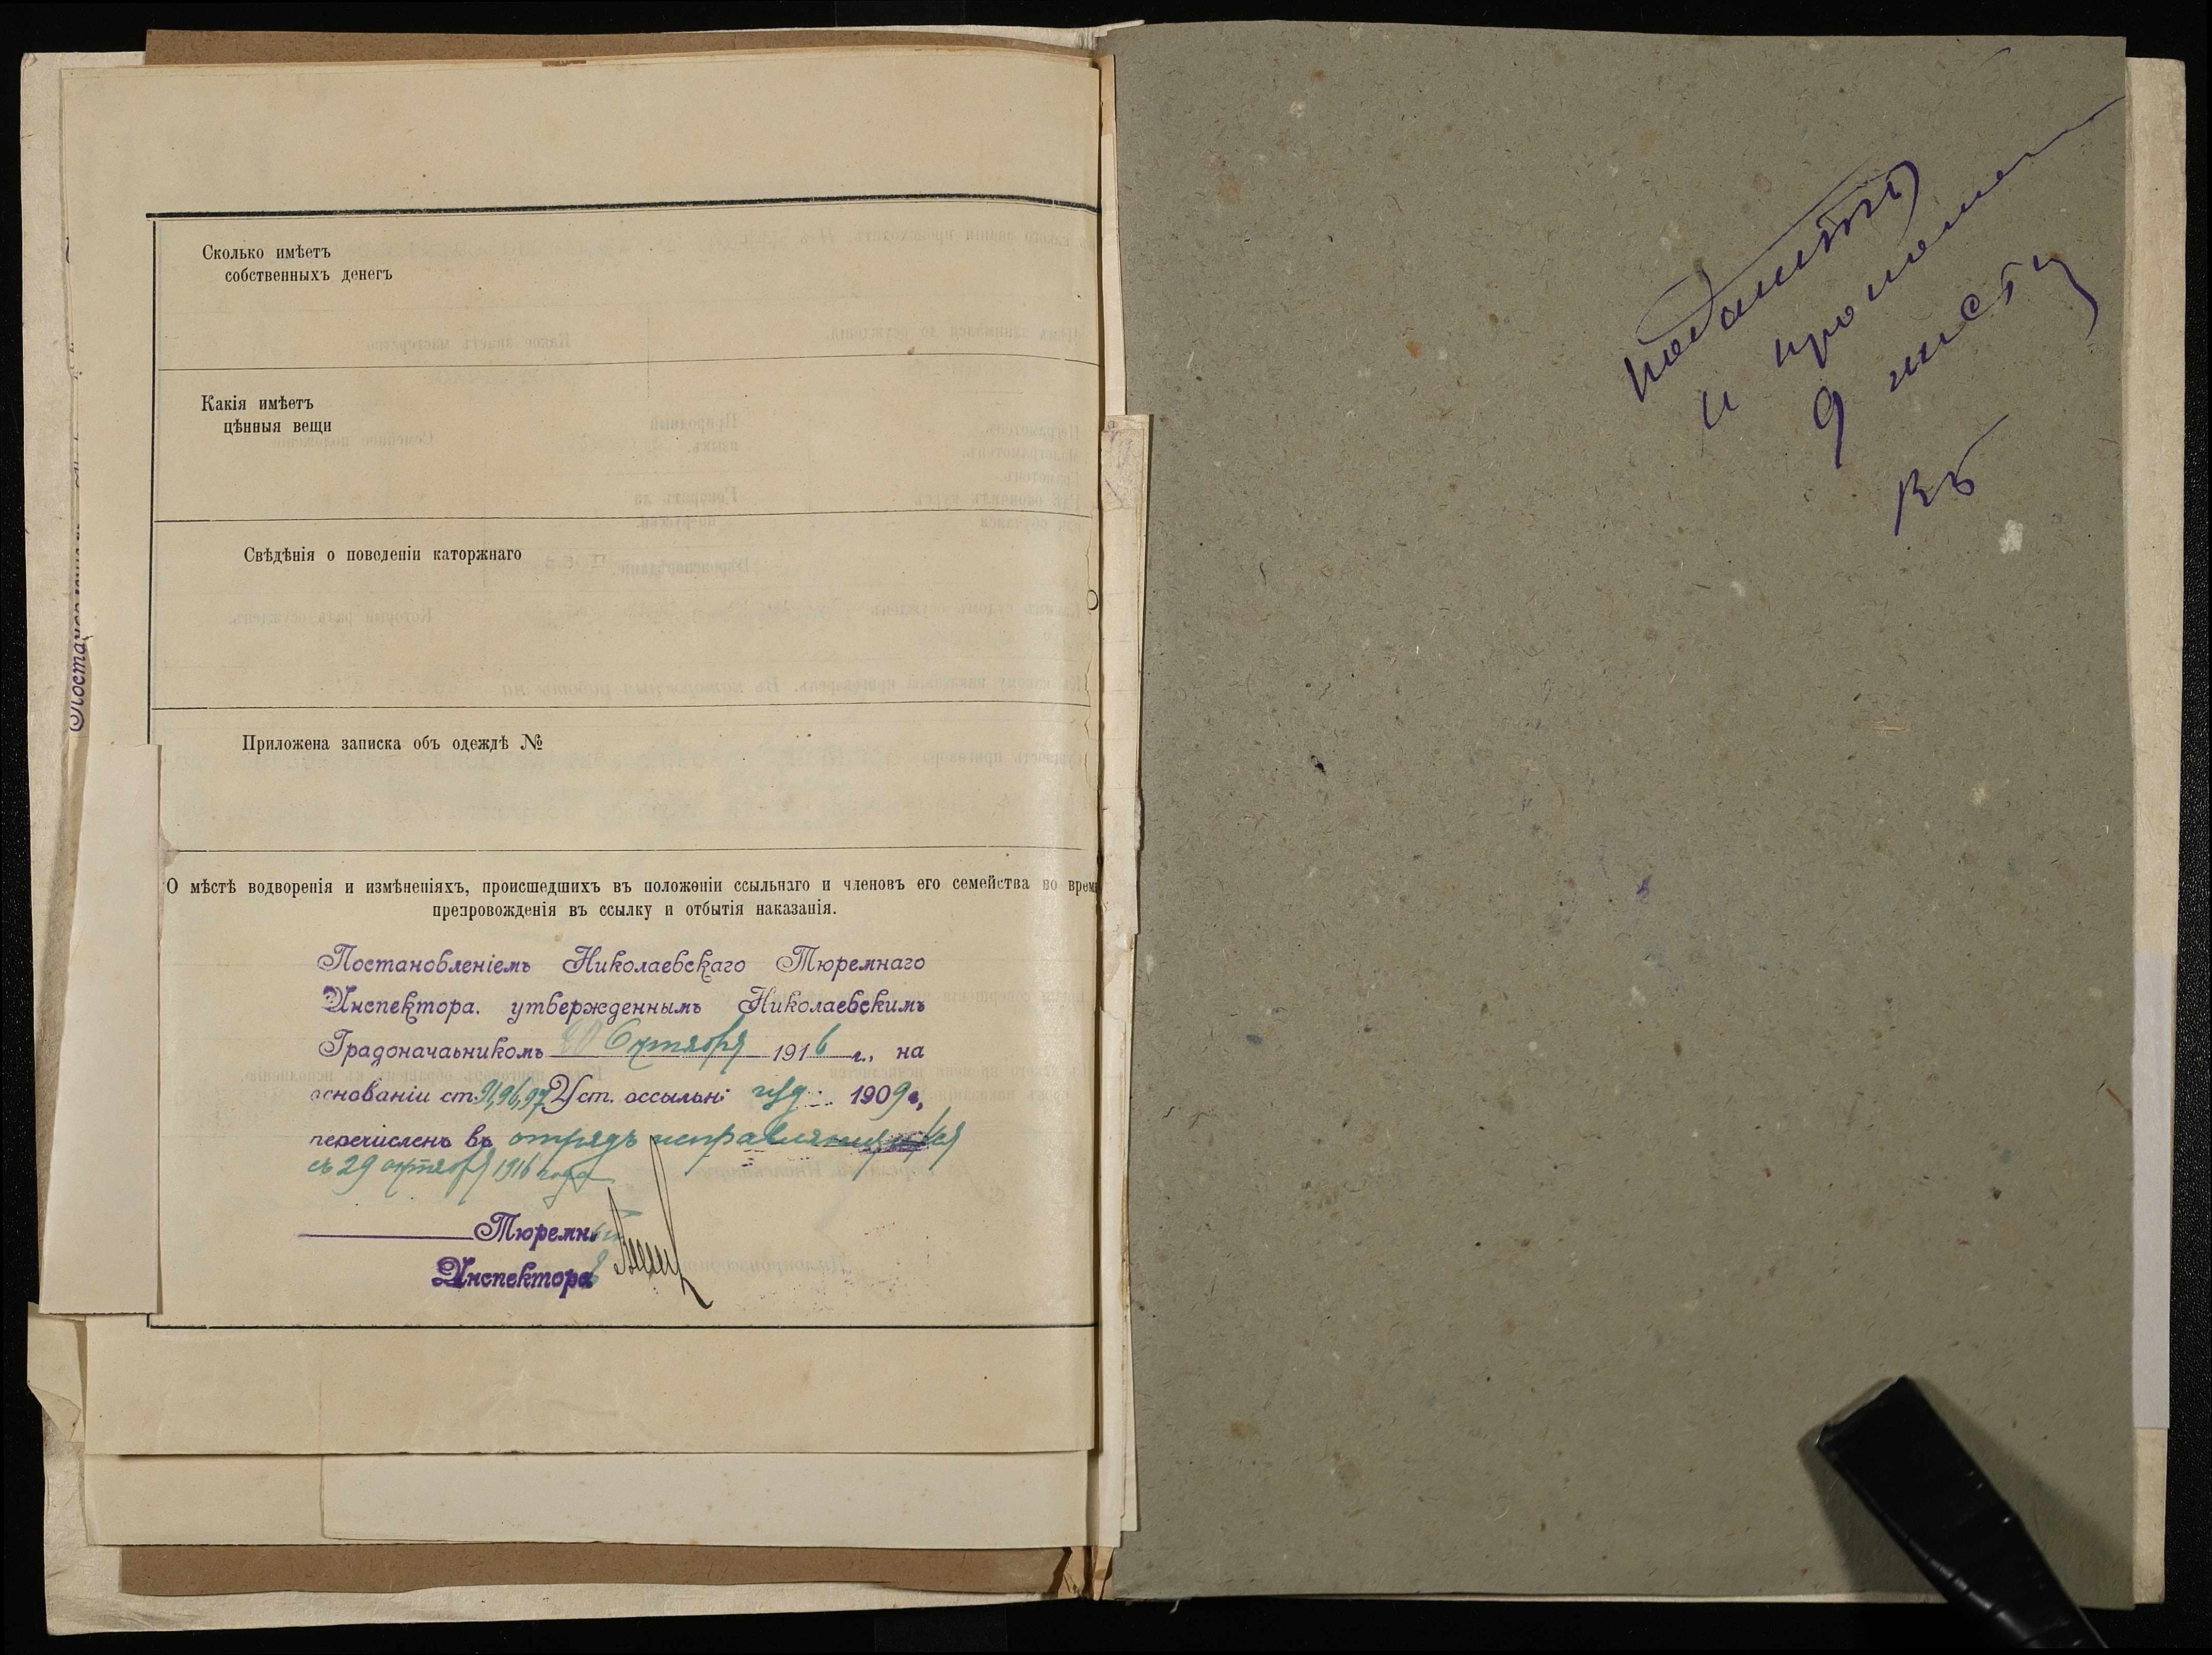 Сколько имѣетъ
собственныхъ денегъ
Какія имѣетъ
цѣнныя вещи
Свѣдѣнія о поведеніи каторжнаго
Приложена записка объ одеждѣ №
О мѣстѣ водворенія и измѣненіяхъ, происшедшихъ въ положеніи ссыльнаго и членовъ его семейства во врем
препровожденія въ ссылку и отбытія наказанія.
Постановленіемъ Николаевскаго Тюремнаго
Инспектора. утвержденнымъ Николаевскимъ
Градоначаьникомъ 20 Октября 1916 г., на
основаніи ст. 91,96,97 Уст. оссыльн: изд. 1909 г,
перечисленъ въ отрядъ исправляющихся
съ 29 октября 1916 года
Тюремный
Инспектора
подшить
и
9 листу